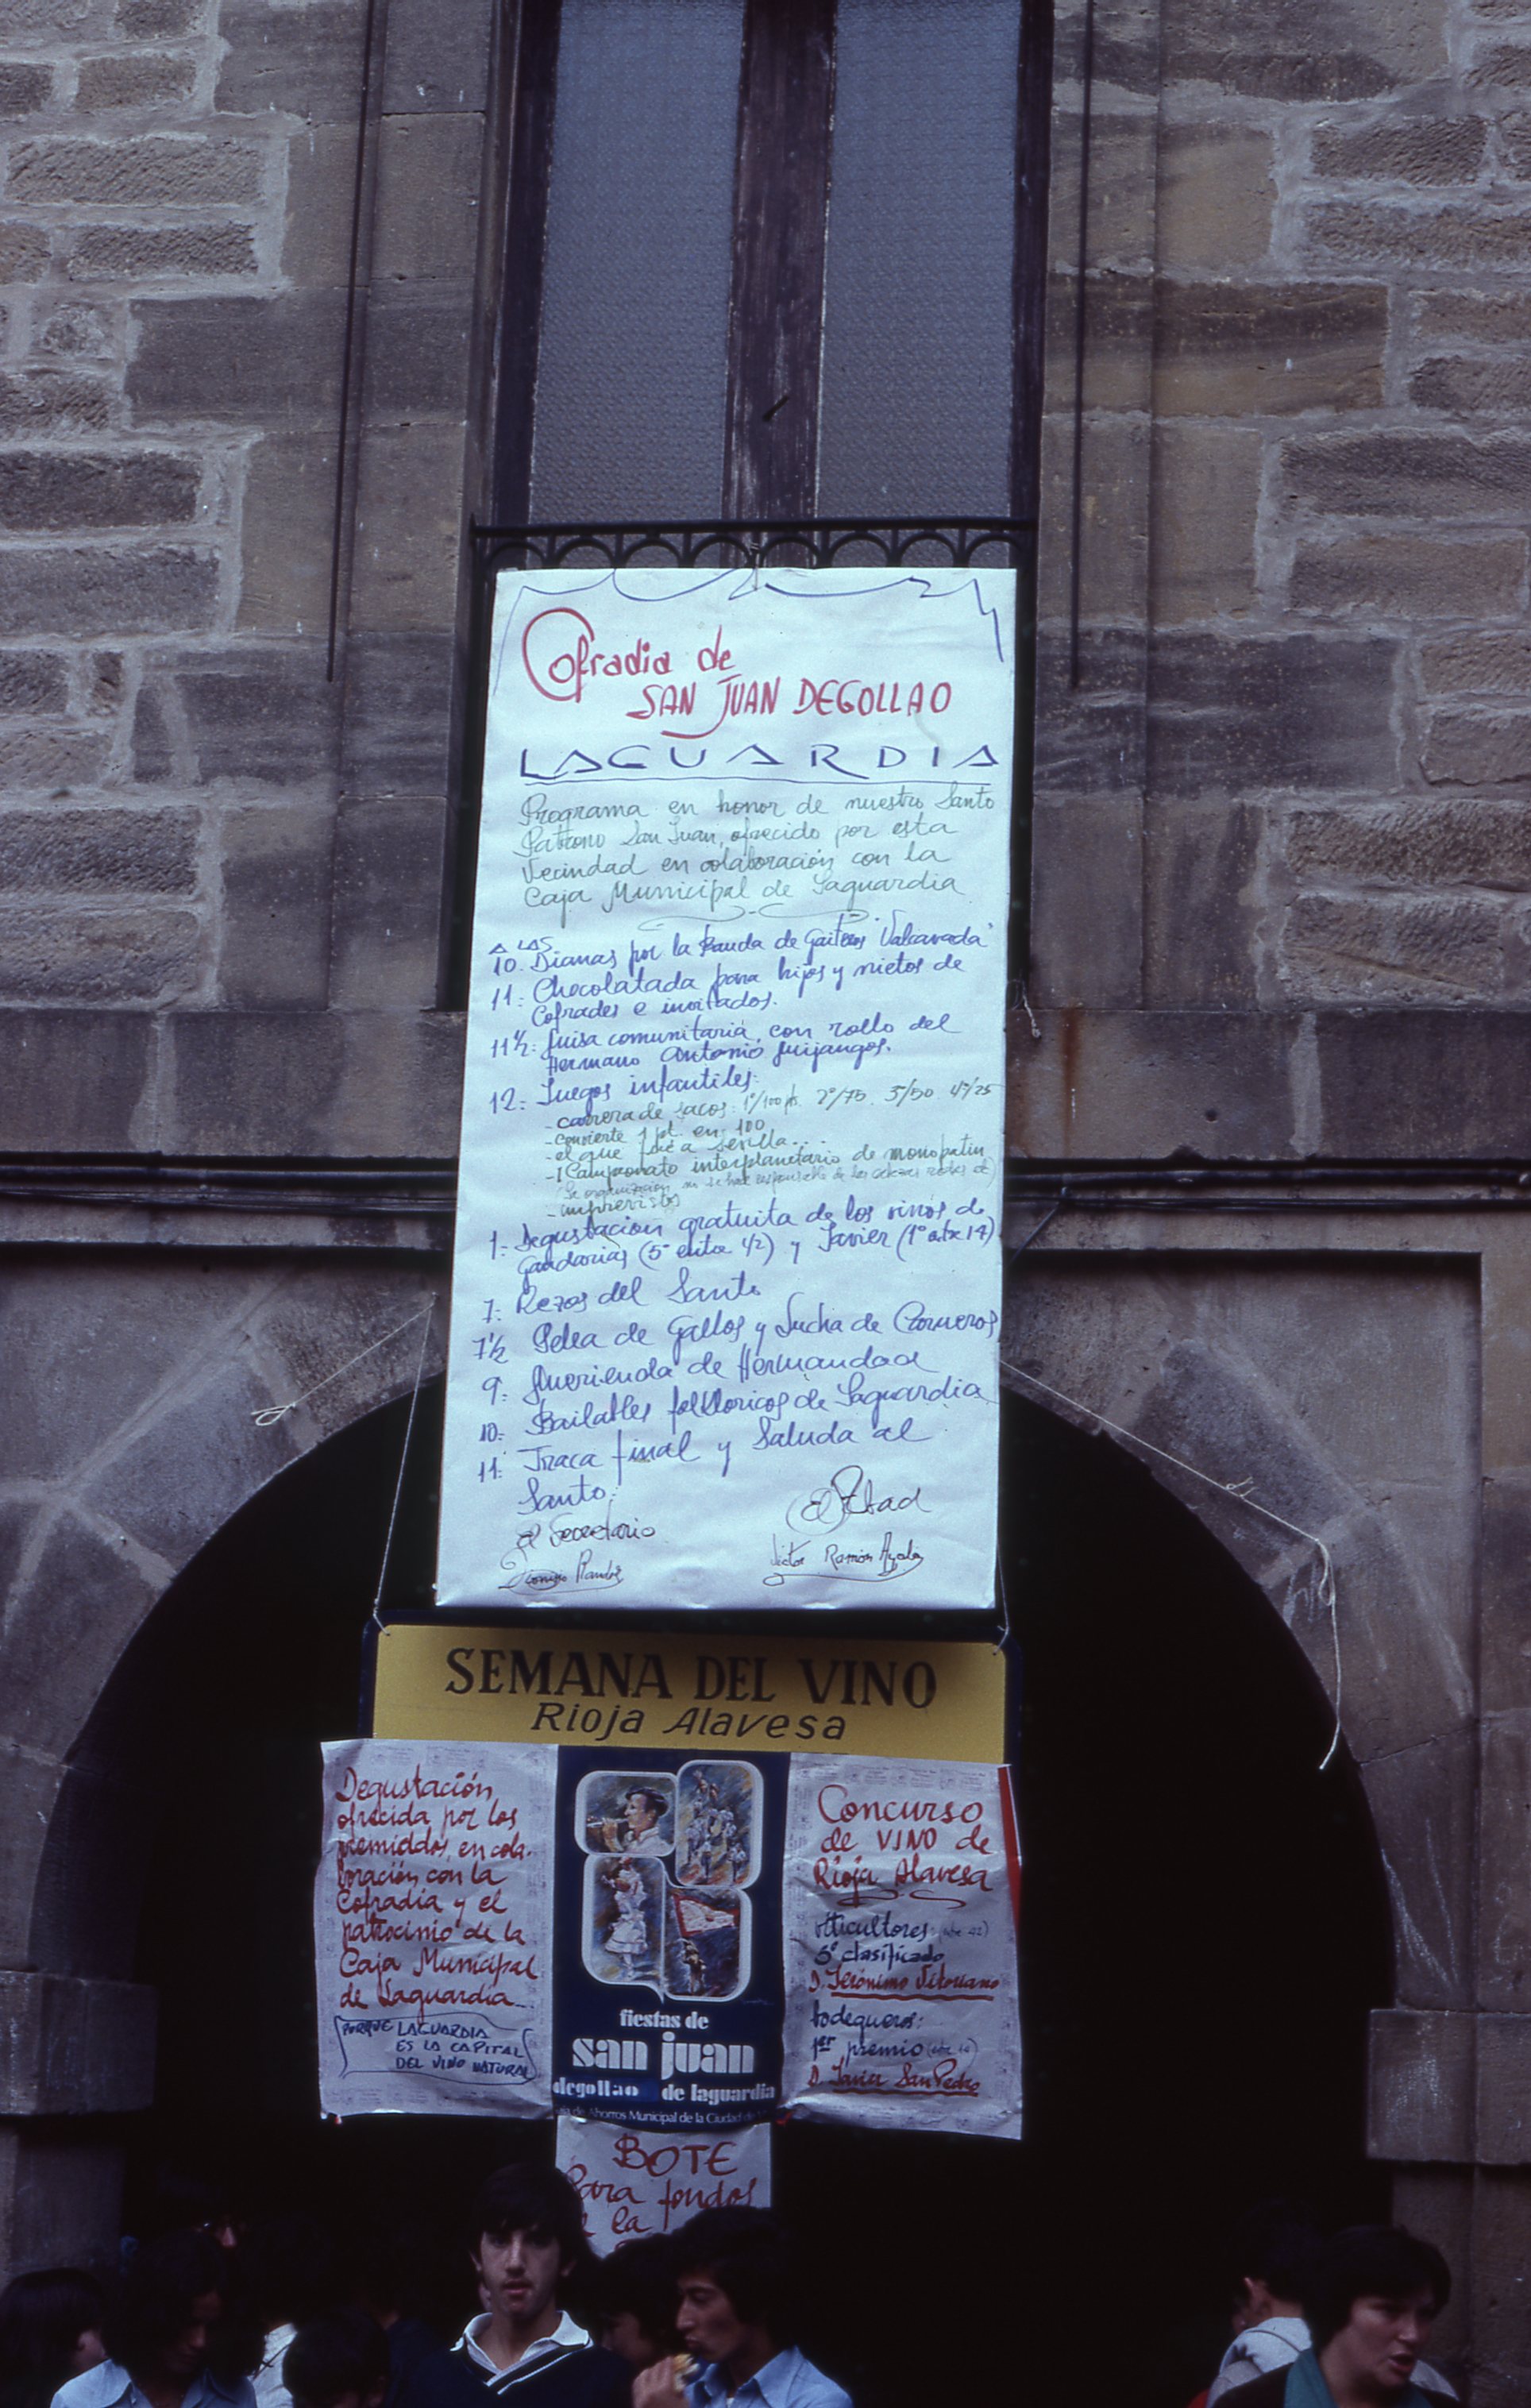 Cofradia de
SAN JUAN DEGOLLAO
LAGUARDIA
Programa en honor de nuestro Santo
Patrono San Juan, ofrecido por esta
Vecindad en colaboración con la
Caja Municipal de Laguardia
A LAS
10. Dianas por la Banda de Gaiteros "Valcavada"
11: Chocolatada para hijos y nietos de
Cofrades e invitados.
11 1/2: Misa comunitaria, con rollo del
Hermano Antonio Mijangos.
12: Juegos infantiles:
- carrera de sacos: 1º/100 pts. 2º/75. 3º/50 4º/25
- convierte 1 pt. en 100
- el que fué a Sevilla...
- I Campeonato interplanetario de monopatin
(La organización no se hace responsable de las cabezas rotas
- imprevistos
1: Degustacion gratuita de los vinos de
Gandarias (5º entre 42) y Javier (1º entre 14)
7: Rezos del Santo
7 1/2 Pelea de Gallos y Lucha de Carneros
9: Merienda de Hermandad
10: Bailables folkloricos de Laguardia
11: Traca final y Saluda al
Santo.
El Secretario
El Abad
Victor Ramón Ayala
SEMANA DEL VINO
Rioja Alavesa
Degustación
ofrecida por los
premiados, en cola-
boración con la
Cofradia y el
patrocinio de la
Caja Municipal
de Laguardia...
PORQUE LAGUARDIA
ES LA CAPITAL
DEL VINO NATURAL
fiestas de
san juan
degollao de laguardia
Caja de Ahorros Municipal de la Ciudad de
Concurso
de VINO de
Rioja Alavesa
viticultores: (entre 42)
5º clasificado
D. Jerónimo Vitoriano
bodegueros:
1er premio
D. Javier San Pedro
BOTE
Para fondos
de la